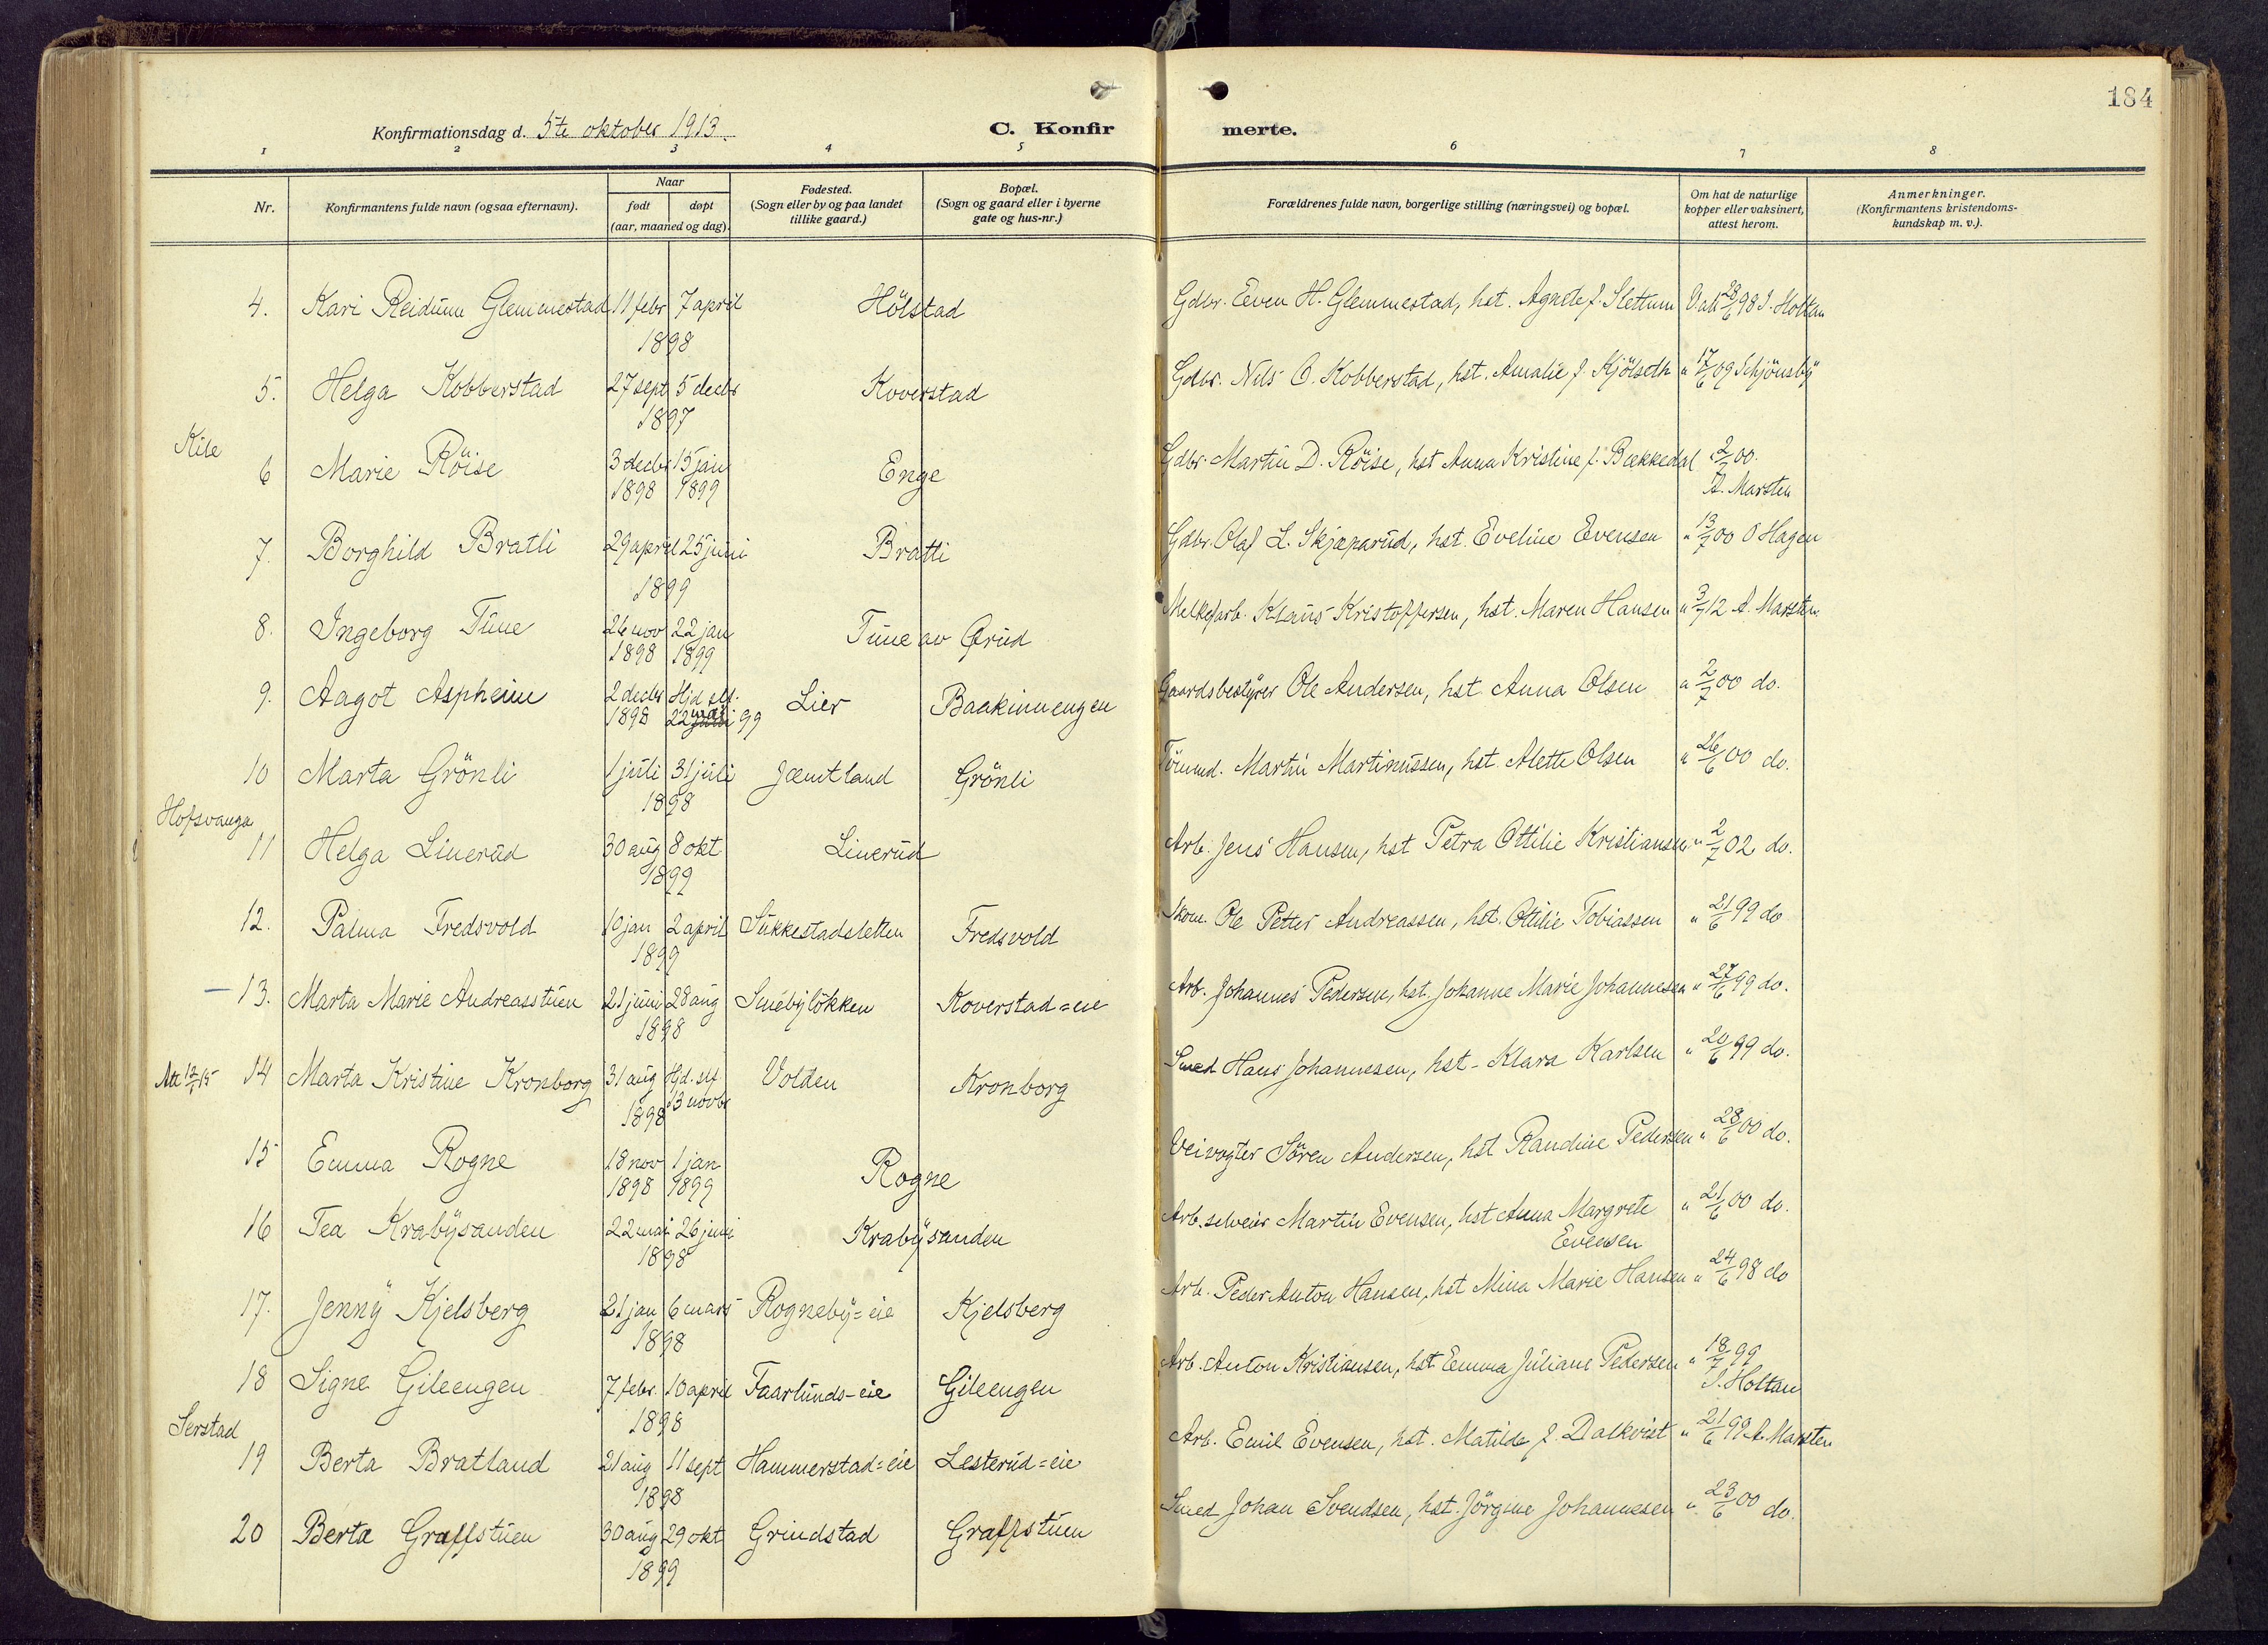 184
Konfirmationsdag d. 5te oktober 1913.
C. Konfir merte.
1 2 3 4 5 6 7 8
Nr.
Konfirmantens fulde navn (ogsaa efternavn).
Naar
født døpt
(aar, maaned og dag).
Fødested.
(Sogn eller by og paa landet
tillike gaard.)
Bopæl.
(Sogn og gaard eller i byerne
gate og hus-nr.)
Forældrenes fulde navn, borgerlige stilling (næringsvei) og bopæl.
Om hat de naturlige
kopper eller vaksinert,
attest herom.
Anmerkninger.
(Konfirmantens kristendoms-
kundskap m. v.).
4. Kari Reidunn Glemmestad 11 febr 7 april Hölstad Gdbr. Even H. Glemmestad, hst. Agnete f. Slettum Vak 28/6 98 I. Holtan
1898
5. Helga Kobberstad 27 sept 5 decbr Koverstad Gdbr. Nils O. Kobberstad, hst. Amalie f. Kjölseth " 17/6 09 Schjönsby
1897
Kile
6 Marie Röise 3 decbr 15 jan Enge Gdbr. Martin D. Röise, hst Anna Kristine f. Bækkedal " 2/7 00.
1898 1899 A. Marsten
7. Borghild Bratli 29 april 25 juni Bratli Gdbr. Olaf L. Skjæparud, hst. Eveline Evensen " 13/7 00 O Hagen
1899
8. Ingeborg Tune 26 nov 22 jan Tune av Ørud Melkefarb. Klaus Kristoffersen, hst. Maren Hansen " 3/7 12 A. Marsten
1898 1899
9. Aagot Aspheim 2 decbr Hjd. st. Lier Baakinnengen Gaardsbestyrer Ole Andersen, hst. Anna Olsen " 2/7 00 do.
1898 22 mai 99
10 Marta Grönli 1 juli 31 juli Jæmtland Grönli Tömmd. Martin Martinussen, hst. Alette Olsen " 26/6 00 do.
1898
Hofsvanga
11 Helga Linerud 30 aug 8 okt Linerud Arb. Jens Hansen, hst Petra Ottilie Kristiansen " 2/7 02 do.
1899
12. Palma Fredsvold 10 jan 2 april Sukkestadsletten Fredsvold Skom. Ole Petter Andreassen, hst. Ottilie Tobiassen " 21/6 99 do
1899
13. Marta Marie Andreasstuen 21 juni 28 aug Smebylökken Koverstad=eie Arb. Johannes Pedersen, hst. Johanne Marie Johannesen " 27/6 99 do.
1898
Att 12/1 15 14 Marta Kristine Kronborg 31 aug Hjd. st Volden Kronborg Smed Hans Johannesen, hst - Klara Karlsen " 20/6 99 do.
1898 13 novbr
15 Emma Rogne 18 nov 1 jan Rogne Veivogter Sören Andersen, hst Randine Pedersen " 28/6 00 do.
1898 1899
16 Tea Krabysanden 22 mai 26 juni Krabysanden Arb. selveier Martin Evensen, hst Anna Margrete " 21/6 00 do.
1898 Evensen
17. Jenny Kjelsberg 21 jan 6 mars Rogneby=eie Kjelsberg Arb. Peder Anton Hansen, hst Mina Marie Hansen " 24/6 98 do
1898
18 Signe Gileengen 7 febr. 10 april Faarlunds-eie Gileengen Arb. Anton Kristiansen, hst Emma Juliane Pedersen " 18/7 99
1898 I. Holtan
Serstad
19 Berta Bratland 21 aug 11 sept Hammerstad=eie Lesterud=eie Arb. Emil Evensen, hst. Matilde f. Dalkvist " 21/6 99 A. Marsten
1898
20 Berta Graffstuen 30 aug 29 okt Grindstad Graffstuen Smed Johan Svendsen, hst. Jörgine Johannesen " 23/6 00 do.
1899